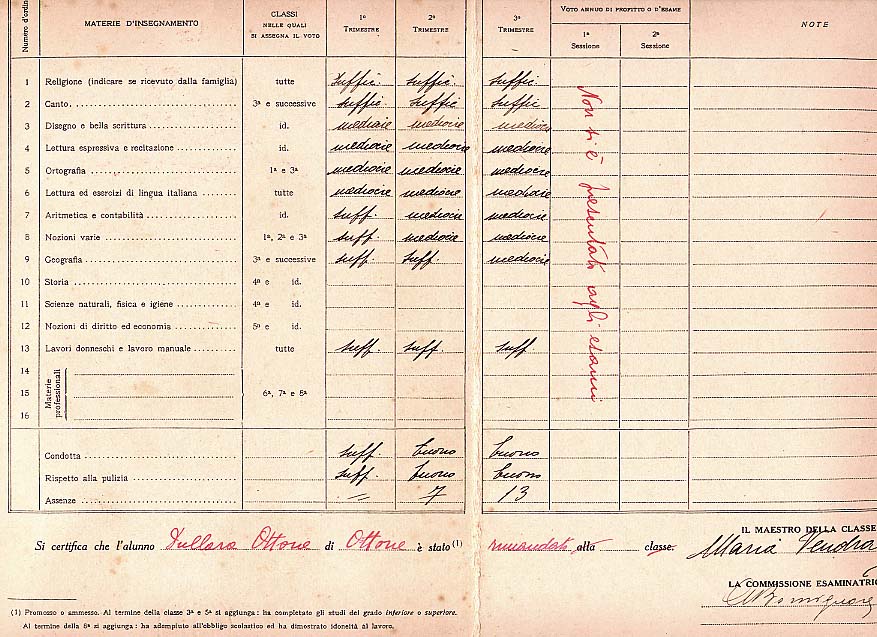 Numero d'ordine MATERIE D'INSEGNAMENTO CLASSI NELLE QUALI SI ASSEGNA IL VOTO 1º TRIMESTRE 2º TRIMESTRE 3º TRIMESTRE VOTO ANNUO DI PROFITTO O D'ESAME 1ª Sessione 2ª Sessione NOTE
1 Religione (indicare se ricevuto dalla famiglia) tutte suffic. suffic. suffic.
2 Canto 3ª e successive suffic. suffic suffic
3 Disegno e bella scrittura id. mediocre mediocre mediocre
4 Lettura espressiva e recitazione id. mediocre mediocre mediocre
5 Ortografia 1ª e 3ª mediocre mediocre mediocre
6 Lettura ed esercizi di lingua italiana tutte mediocre mediocre mediocre
7 Aritmetica e contabilità id. suff. mediocre mediocre
8 Nozioni varie 1ª, 2ª e 3ª suff. mediocre mediocre
9 Geografia 3ª e successive suff. suff. mediocre
10 Storia 4ª e id.
11 Scienze naturali, fisica e igiene 4ª e id.
12 Nozioni di diritto ed economia 5ª e id.
13 Lavori donneschi e lavoro manuale tutte suff. suff. suff.
14
15 Materie professionali 6ª, 7ª e 8ª
16
Non si è presentato agli esami
Condotta suff. buono buono
Rispetto alla pulizia suff. buono buono
Assenze = 7 13
IL MAESTRO DELLA CLASSE
Si certifica che l'alunno Ottone di Ottone è stato (1) rimandato alla classe. Maria
LA COMMISSIONE ESAMINATRIC
(1) Promosso o ammesso. Al termine della classe 3ª e 5ª si aggiunga : ha completato gli studi del grado inferiore o superiore.
Al termine della 8ª si aggiunga : ha adempiuto all'obbligo scolastico ed ha dimostrato idoneità al lavoro.